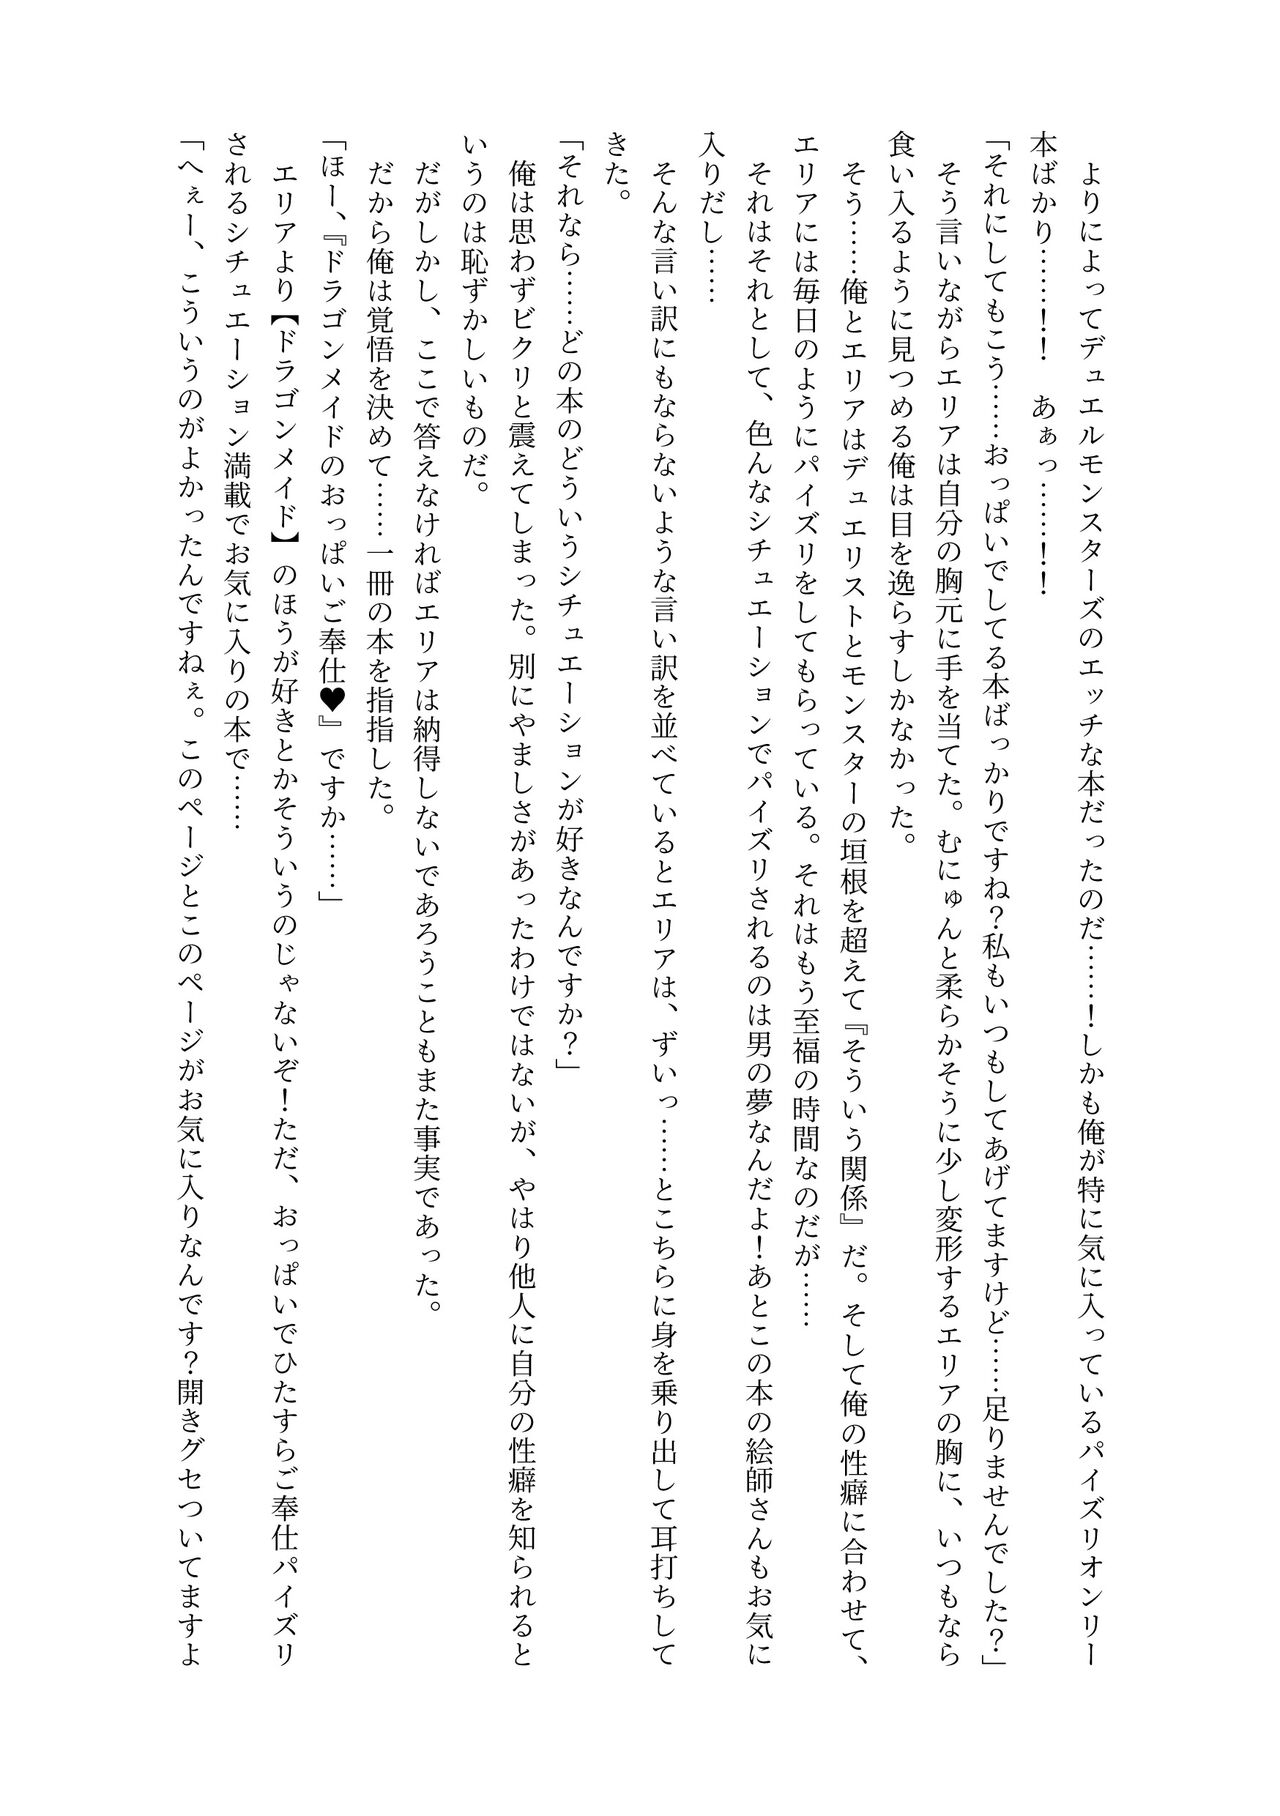 よりによってデュエルモンスターズのエッチな本だったのだ……！しかも俺が特に気に入っているパイズリオンリー
本ばかり……！！　あぁっ……！！
「それにしてもこう……おっぱいでしてる本ばっかりですね？私もいつもしてあげてますけど……足りませんでした？」
そう言いながらエリアは自分の胸元に手を当てた。むにゅんと柔らかそうに少し変形するエリアの胸に、いつもなら
食い入るように見つめる俺は目を逸らすしかなかった。
そう……俺とエリアはデュエリストとモンスターの垣根を超えて『そういう関係』だ。そして俺の性癖に合わせて、
エリアには毎日のようにパイズリをしてもらっている。それはもう至福の時間なのだが……
それはそれとして、色んなシチュエーションでパイズリされるのは男の夢なんだよ！あとこの本の絵師さんもお気に
入りだし……
そんな言い訳にもならないような言い訳を並べているとエリアは、ずいっ……とこちらに身を乗り出して耳打ちして
きた。
「それなら……どの本のどういうシチュエーションが好きなんですか？」
俺は思わずビクリと震えてしまった。別にやましさがあったわけではないが、やはり他人に自分の性癖を知られると
いうのは恥ずかしいものだ。
だがしかし、ここで答えなければエリアは納得しないであろうこともまた事実であった。
だから俺は覚悟を決めて……一冊の本を指指した。
「ほー、『ドラゴンメイドのおっぱいご奉仕♥』ですか……」
エリアより【ドラゴンメイド】のほうが好きとかそういうのじゃないぞ！ただ、おっぱいでひたすらご奉仕パイズリ
されるシチュエーション満載でお気に入りの本で……
「へぇー、こういうのがよかったんですねぇ。このページとこのページがお気に入りなんです？開きグセついてますよ